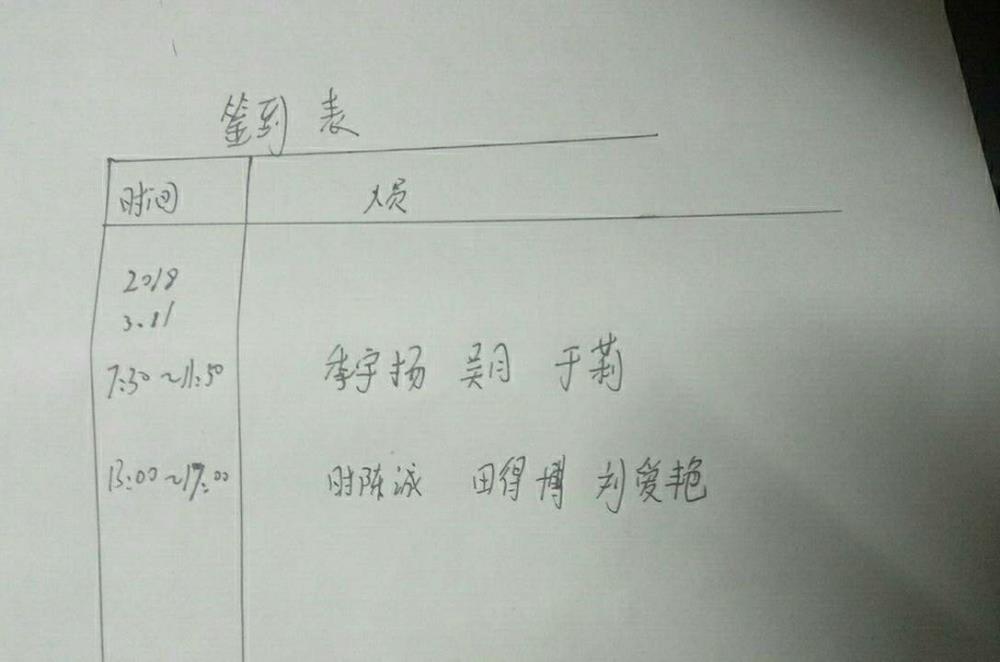 签到表
时间 人员
2018
3.11
7:30~11:50 李宇扬 吴月 于莉
13:00~17:00 时陈诚 田得博 刘爱艳